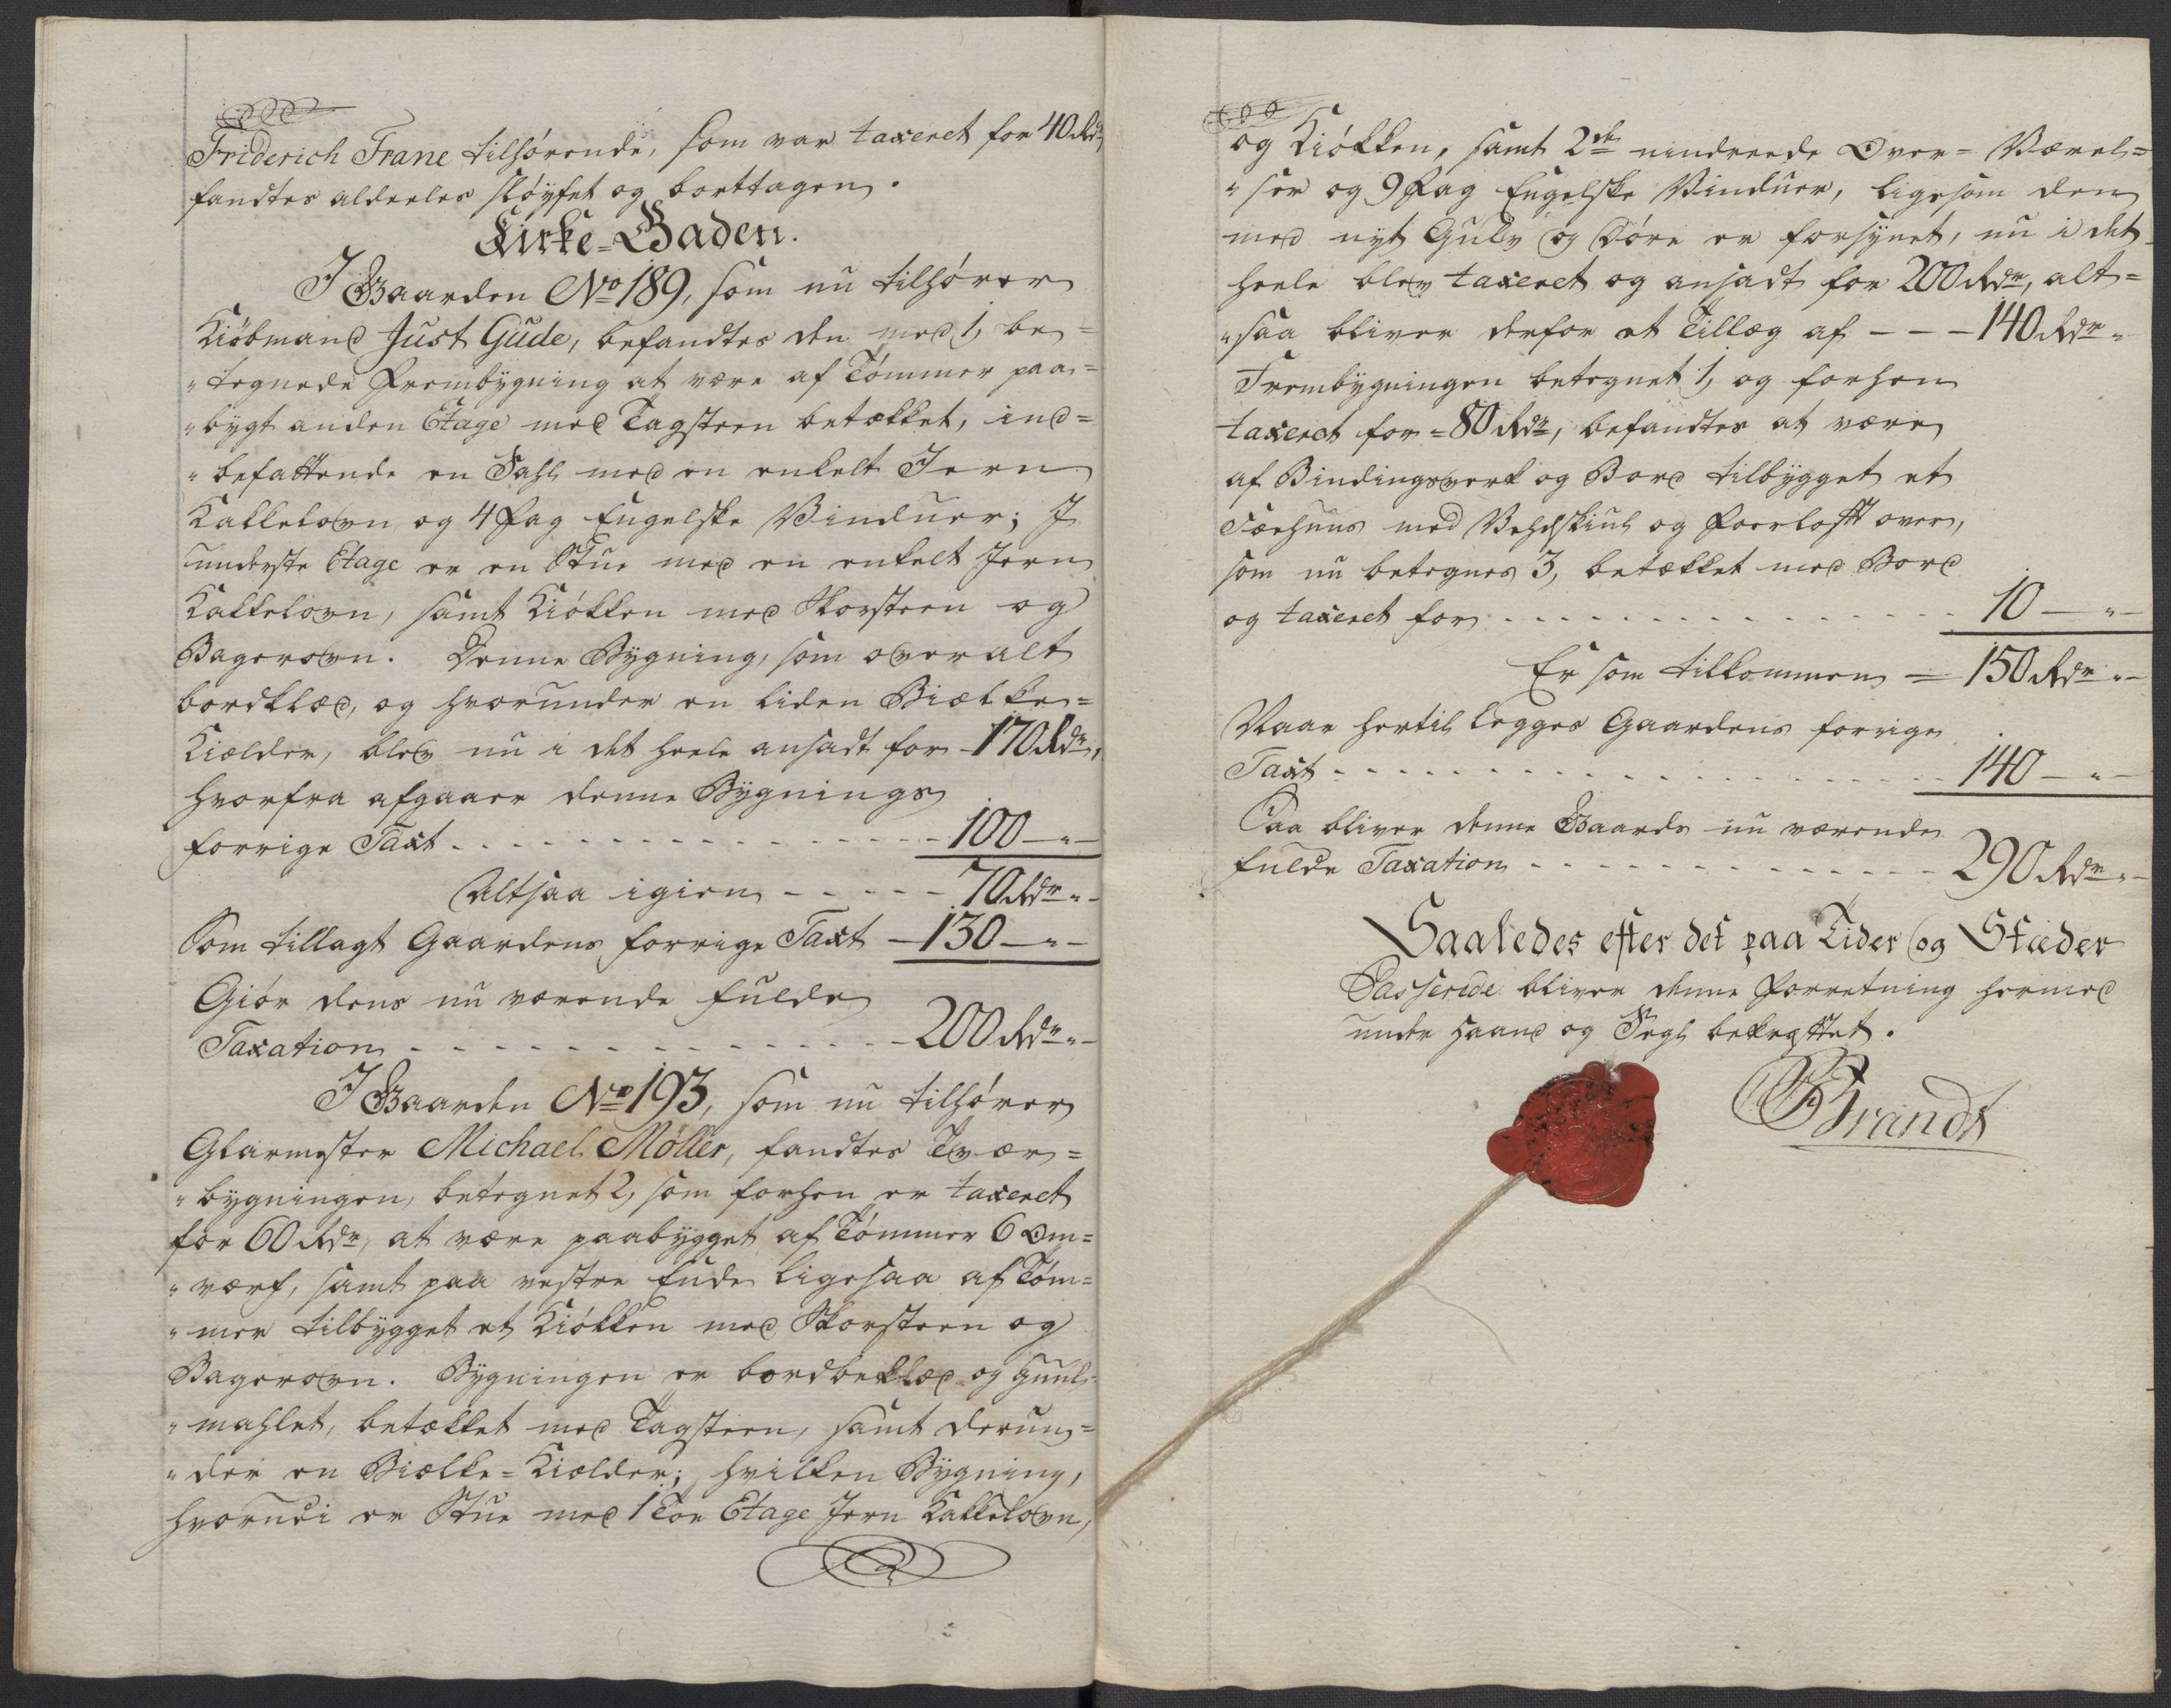 Friderich Frane tilhørende, som var taxeret for 40 Rdr,
fandtes aldeeles sløyfet og borttagen.
Kirke-Gaden.
I Gaarden No 189, som nu tilhører
Kiøbmand Just Gude, befandtes den med 1, be=
"tegnede Frembygning at være af Tømmer paa=
"bygt anden Etage med Tagsteen betækket, ind=
"befattende en Sahl med en enkelt Jern
Kakkelovn og 4 Fag Engelske Vinduer; I
underste Etage er en Stue med en enkelt Jern
Kakkelovn, samt Kiøkken med Skorsteen og
Bagerovn. Denne Bygning, som overalt
bordklæd, og hvorunder en liden Biælke=
Kielder, blev nu i det heele ansadt for 170 Rdr,
hvorfra afgaaer denne Bygnings
forrige Taxt - - - 100 — " —
Altsaa igien - - - 70 Rdr " -
Som tillagt Gaardens forrige Taxt — 130 — " —
Giør dens nu værende fulde
Taxation - - - 200 Rdr " -
I Gaarden No 193, som nu tilhører
Glarmester Michael Møller, fandtes Tvær=
"bygningen, betegnet 2, som forhen er taxeret
for 60 Rdr, at være paabygget af Tømmer 6 Om=
"værf, samt paa vestre Ende ligesaa af Tøm=
"mer tilbygget et Kiøkken med Skorsteen og
Bagerovn. Bygningen er bordbeklæd og guul=
"mahlet, betækket med Tagsteen, samt derun=
"der en Biælke=Kielder; hvilken Bygning,
hvorudi er Stue med 1 Toe Etage Jern Kakkelovn,
og Kiøkken, samt 2de mindreede Over= Værel=
"ser og 9 Fag Engelske Vinduer, ligesom den
med nyt Gulv og Døre er forsynet, nu i det
heele blev taxeret og ansadt for 200 Rdr, alt=
"saa bliver derfor et Tillæg af - - - 140 Rdr "
Frembygningen betegnet 1, og forhen
taxeret for = 80 Rdr, befandtes at være
af Bindingsverk og Bord tilbygget et
Fæehuus med Vehdskiul og Foerloft over,
som nu betegnes 3, betækket med Bord
og taxeret for - - - 10 — " —
Er som tilkommen = 150 Rdr " -
Naar hertil legges Gaardens forrige
Taxt - - - 140 — " —
Saa bliver denne Gaards nu værende
fulde Taxation - - - 290 Rdr " -
Saaledes efter det paa Tider og Stæder
Passerede bliver denne Forretning hermed
under Haand og Segl bekræftet.
Brandt